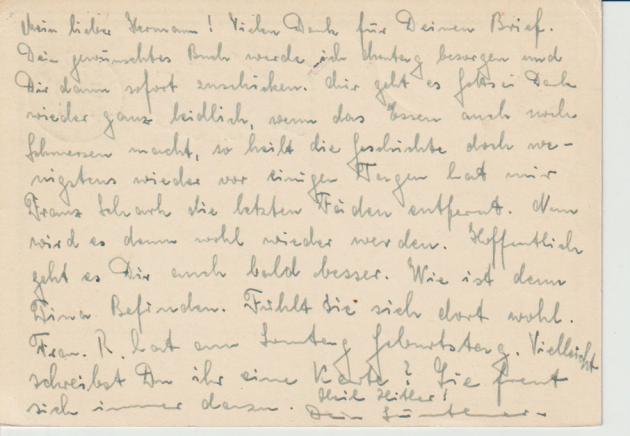 Mein lieber Hermann! Vielen Dank für Deinen Brief.
Dein gewünschtes Buch werde ich Montag besorgen und
Dir dann sofort zuschicken. Mir geht es Gott sei Dank
wieder ganz leidlich, wenn das Essen auch noch
Schmerzen macht, so heilt die Geschichte doch we-
nigstens wieder vor einigen Tagen hat mir
Franz Schark die letzten Fäden entfernt. Nun
wird es denn wohl wieder werden. Hoffentlich
geht es Dir auch bald besser. Wie ist denn
Tina Befinden. Fühlt sie sich dort wohl.
Frau R. hat am Sonntag Geburtstag. Vielleicht
schreibst Du ihr eine Karte? Sie freut
sich immer daran. Heil Hitler!
Dein